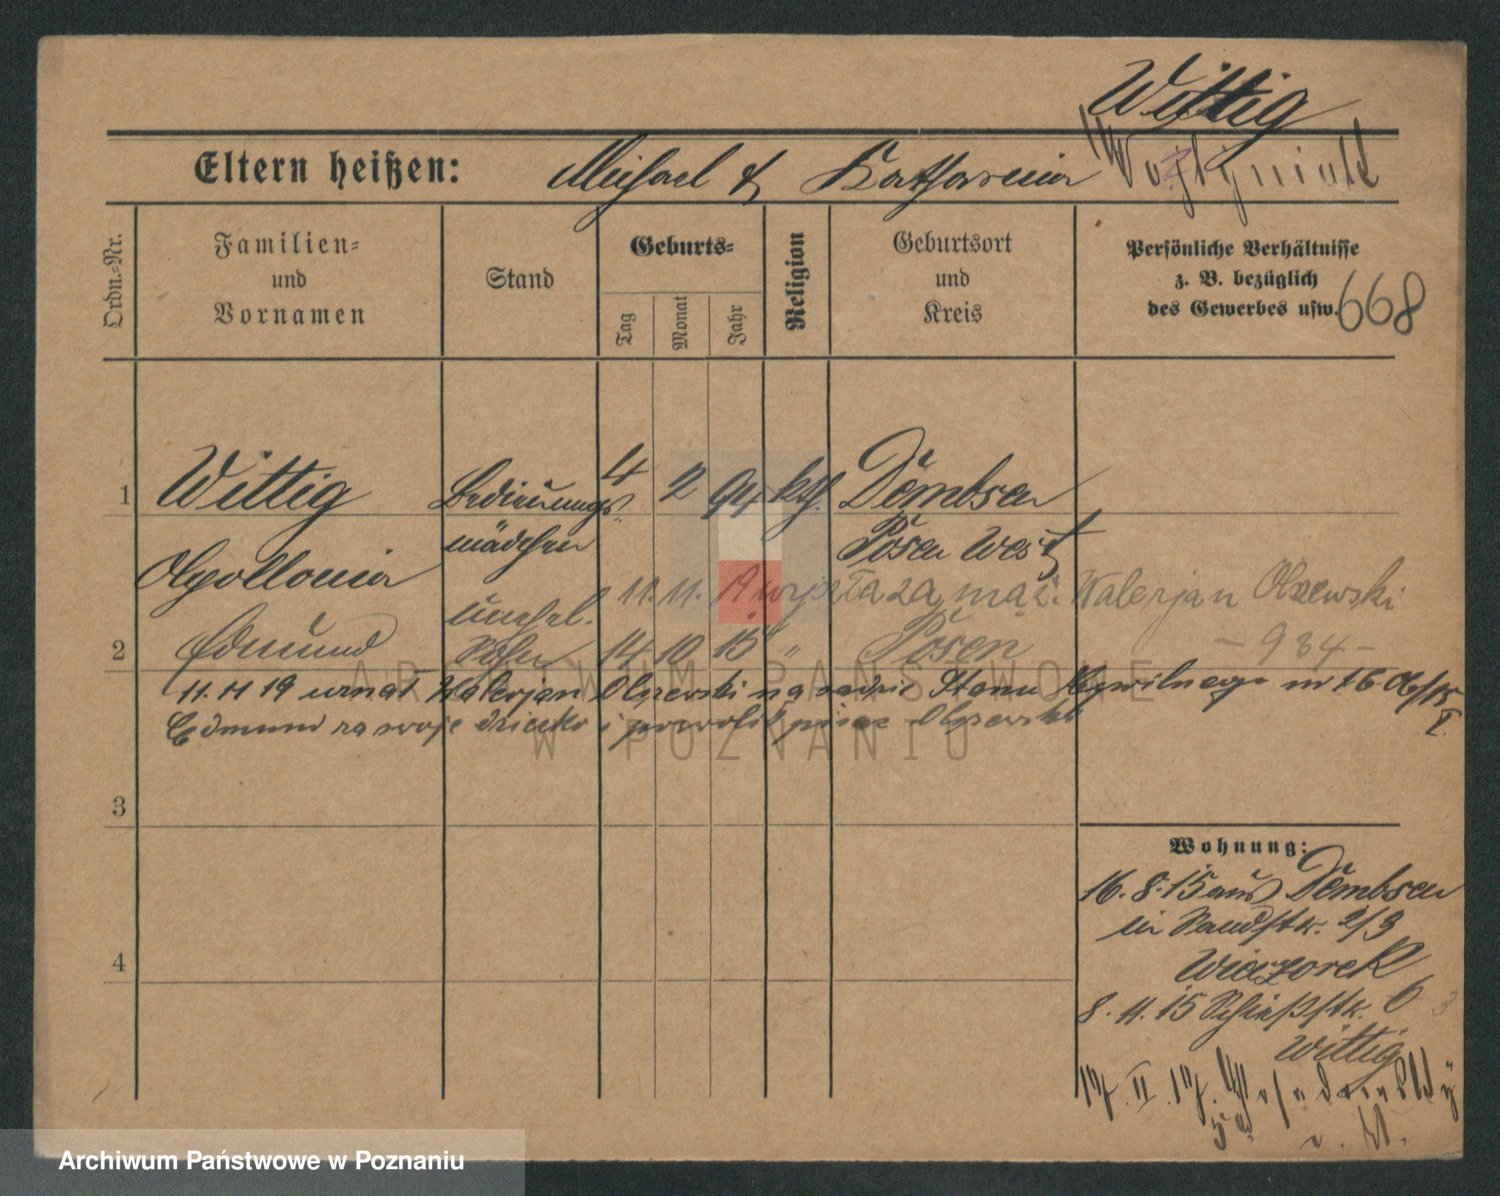 Wittig
Eltern heißen: Michael & Katharina
Ordn.-Nr.
Familien- und Vornamen
Stand
Geburts-
Tag Monat Jahr
Religion
Geburtsort und Kreis
Persönliche Verhältnisse
z. B. bezüglich
des Gewerbes usw. 668
1 Wittig Bedienungs- 4 2 94 kth. Dembsen
mädchen Posen West
Apollonia
11. 11. 19 wyszła za mąż. Walerjan Olszewski
unehel.
2 Edmund Sohn 14 10 15 " Posen - 984 -
11. 11 19 uznał Walerjan Olszewski na sądzie Stanu Cywilnego
Edmund za swoje dziecko i pozwolił pisać Olszewski
3
4
Wohnung:
16. 8. 15 aus Dembsen
in Sandstr. 2/3
Wieczorek
8. 11. 15 Schießstr. 6
Wittig
17. II. 17.
5a
ARCHIWUM PAŃSTWOWE
W POZNANIU
Archiwum Państwowe w Poznaniu